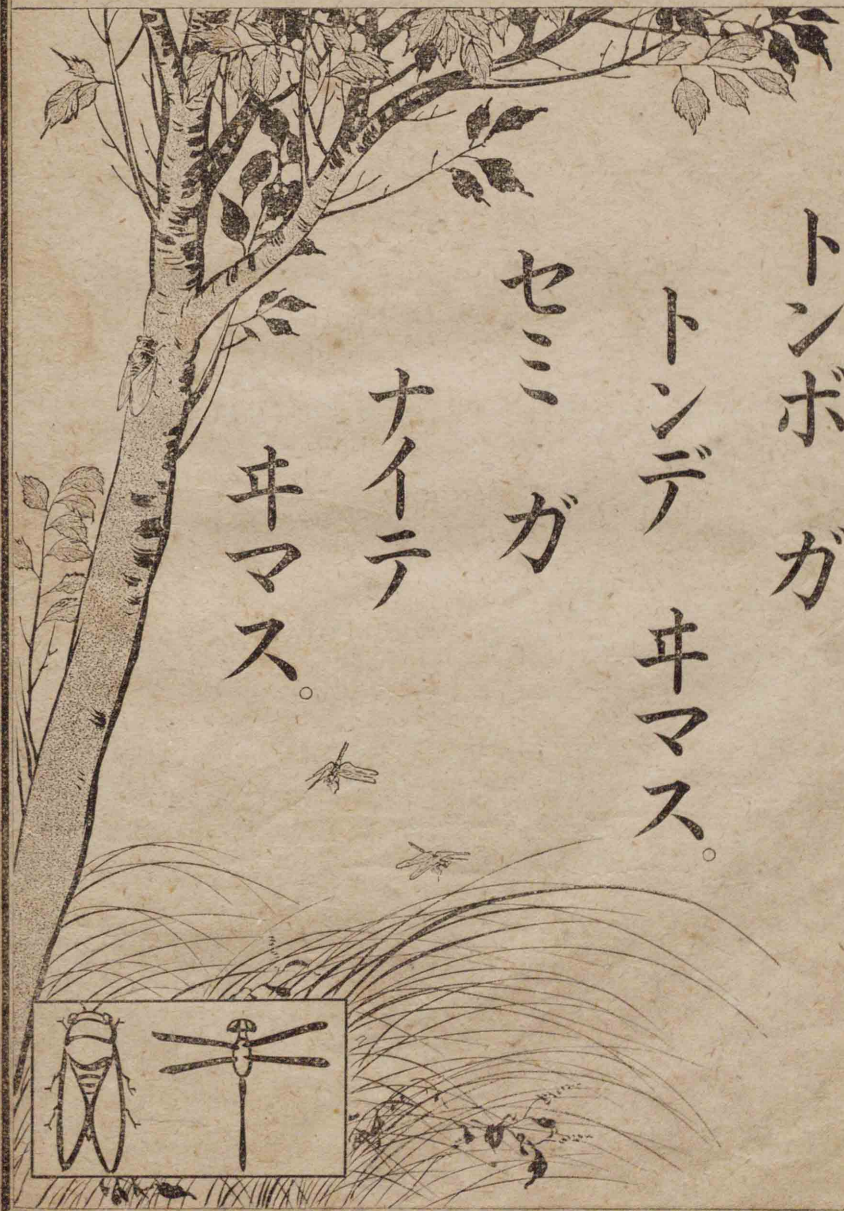 トンボ ガ
トンデ ヰマス。
セミ ガ
ナイテ
ヰマス。